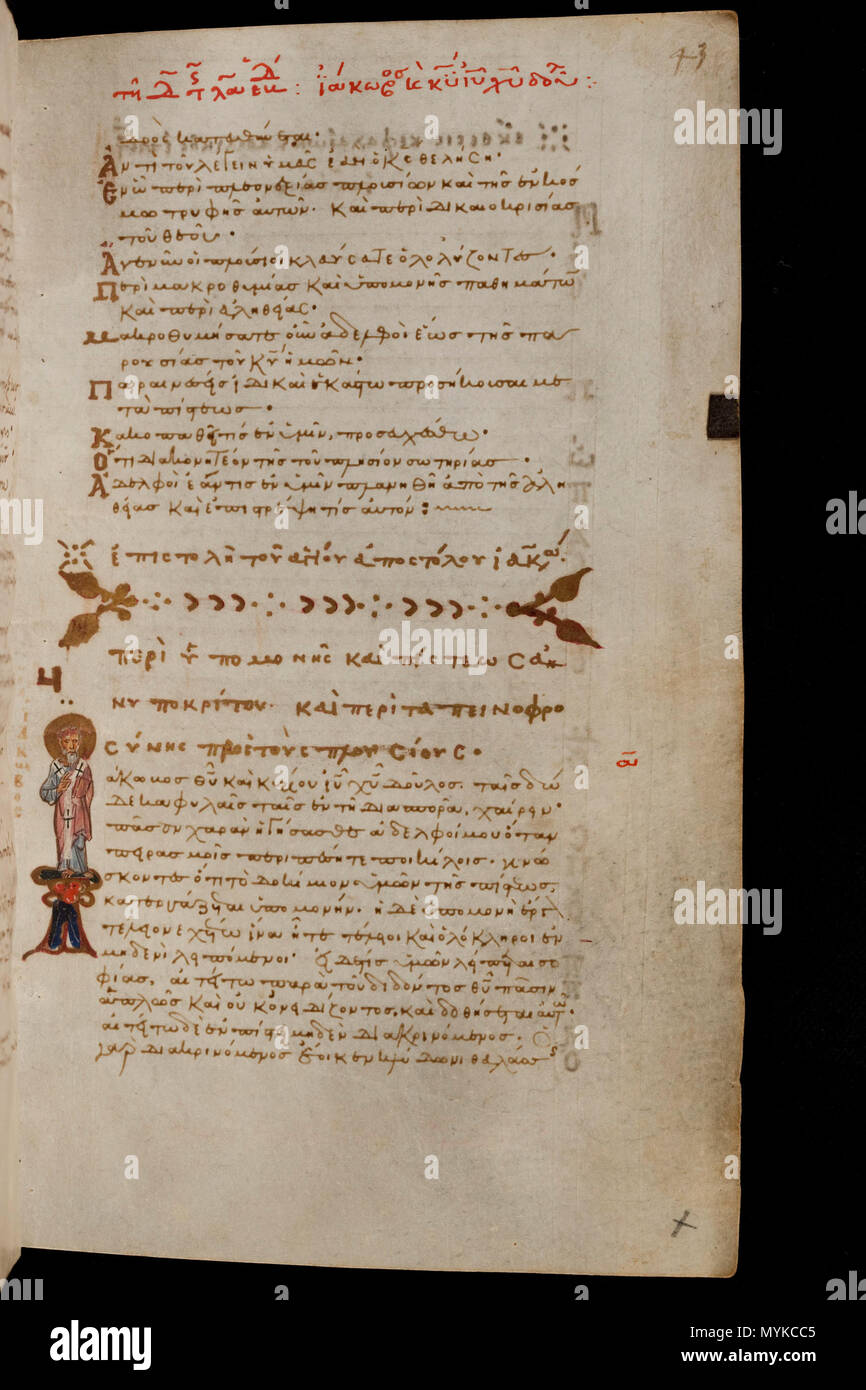 43
τῆ Δ τ λγ
πρὸς
Ἀντὶ τοῦ λέγειν ὑμᾶς ἐὰν ὁ κς θελήση·
Ἐν ᾧ περὶ πλεονεξίας πλουσίων καὶ τῆς ἐν κοσ
μω τρυφῆς αὐτῶν· καὶ περὶ δικαιοκρισίας
τοῦ θεοῦ·
Ἄγε νῦν οἱ πλούσιοι κλαύσατε ὀλολύζοντες·
Περὶ μακροθυμίας καὶ ὑπομονῆς παθημάτων
καὶ περὶ ἀληθείας·
μακροθυμήσατε οὖν ἀδελφοὶ ἕως τῆς πα
ρουσίας τοῦ κυ ἡμῶν·
Παραινέσεις ἰδικαὶ ἑκάστω προσήκουσαι με
τὰ πίστεως·
Κακοπαθεῖ τις ἐν ὑμῖν, προσευχέσθω·
Ὅτι διακονητέον τῆς τοῦ πλησίον σωτηρίας·
Ἀδελφοὶ ἐάν τις ἐν ὑμῖν πλανηθῆ ἀπὸ τῆς ἀλη
θείας καὶ ἐπιστρέψη τίς αὐτὸν:
ἐπιστολὴ τοῦ ἁγίου ἀποστόλου ἰακώβου·
περὶ ὑπομονῆς καὶ πίστεως ἀ
νυποκρίτου· καὶ περὶ ταπεινοφρο
σύνης πρὸς τοὺς πλουσίους·
ἀκωβος θυ καὶ κυρίου ιυ χυ δοῦλος. ταῖς δώ
δεκα φυλαῖς ταῖς ἐν τῆ διασπορᾶ, χαίρειν·
πᾶσαν χαρὰν ἡγήσασθε ἀδελφοί μου ὅταν
πειρασμοῖς περιπέσητε ποικίλοις· γινώ
σκοντες ὅτι τὸ δοκίμιον ὑμῶν τῆς πίστεως,
κατεργάζεται ὑπομονήν. ἡ δὲ ὑπομονὴ ἔργον
τέλειον ἐχέτω ἵνα ἦτε τέλειοι καὶ ὁλόκληροι ἐν
μηδενὶ λειπόμενοι· εἰ δέ τις ὑμῶν λείπεται σο
φίας, αἰτείτω παρὰ τοῦ διδόντος θυ πᾶσιν
ἁπλῶς καὶ οὐκ ὀνειδίζοντος, καὶ δοθήσεται αὐτῶ·
αἰτείτω δὲ ἐν πίστει μηδὲν διακρινόμενος· ὁ
γὰρ διακρινόμενος ἔοικεν κλύδωνι θαλάσσης
α
alamy
Image ID: MYKCC5
www.alamy.com